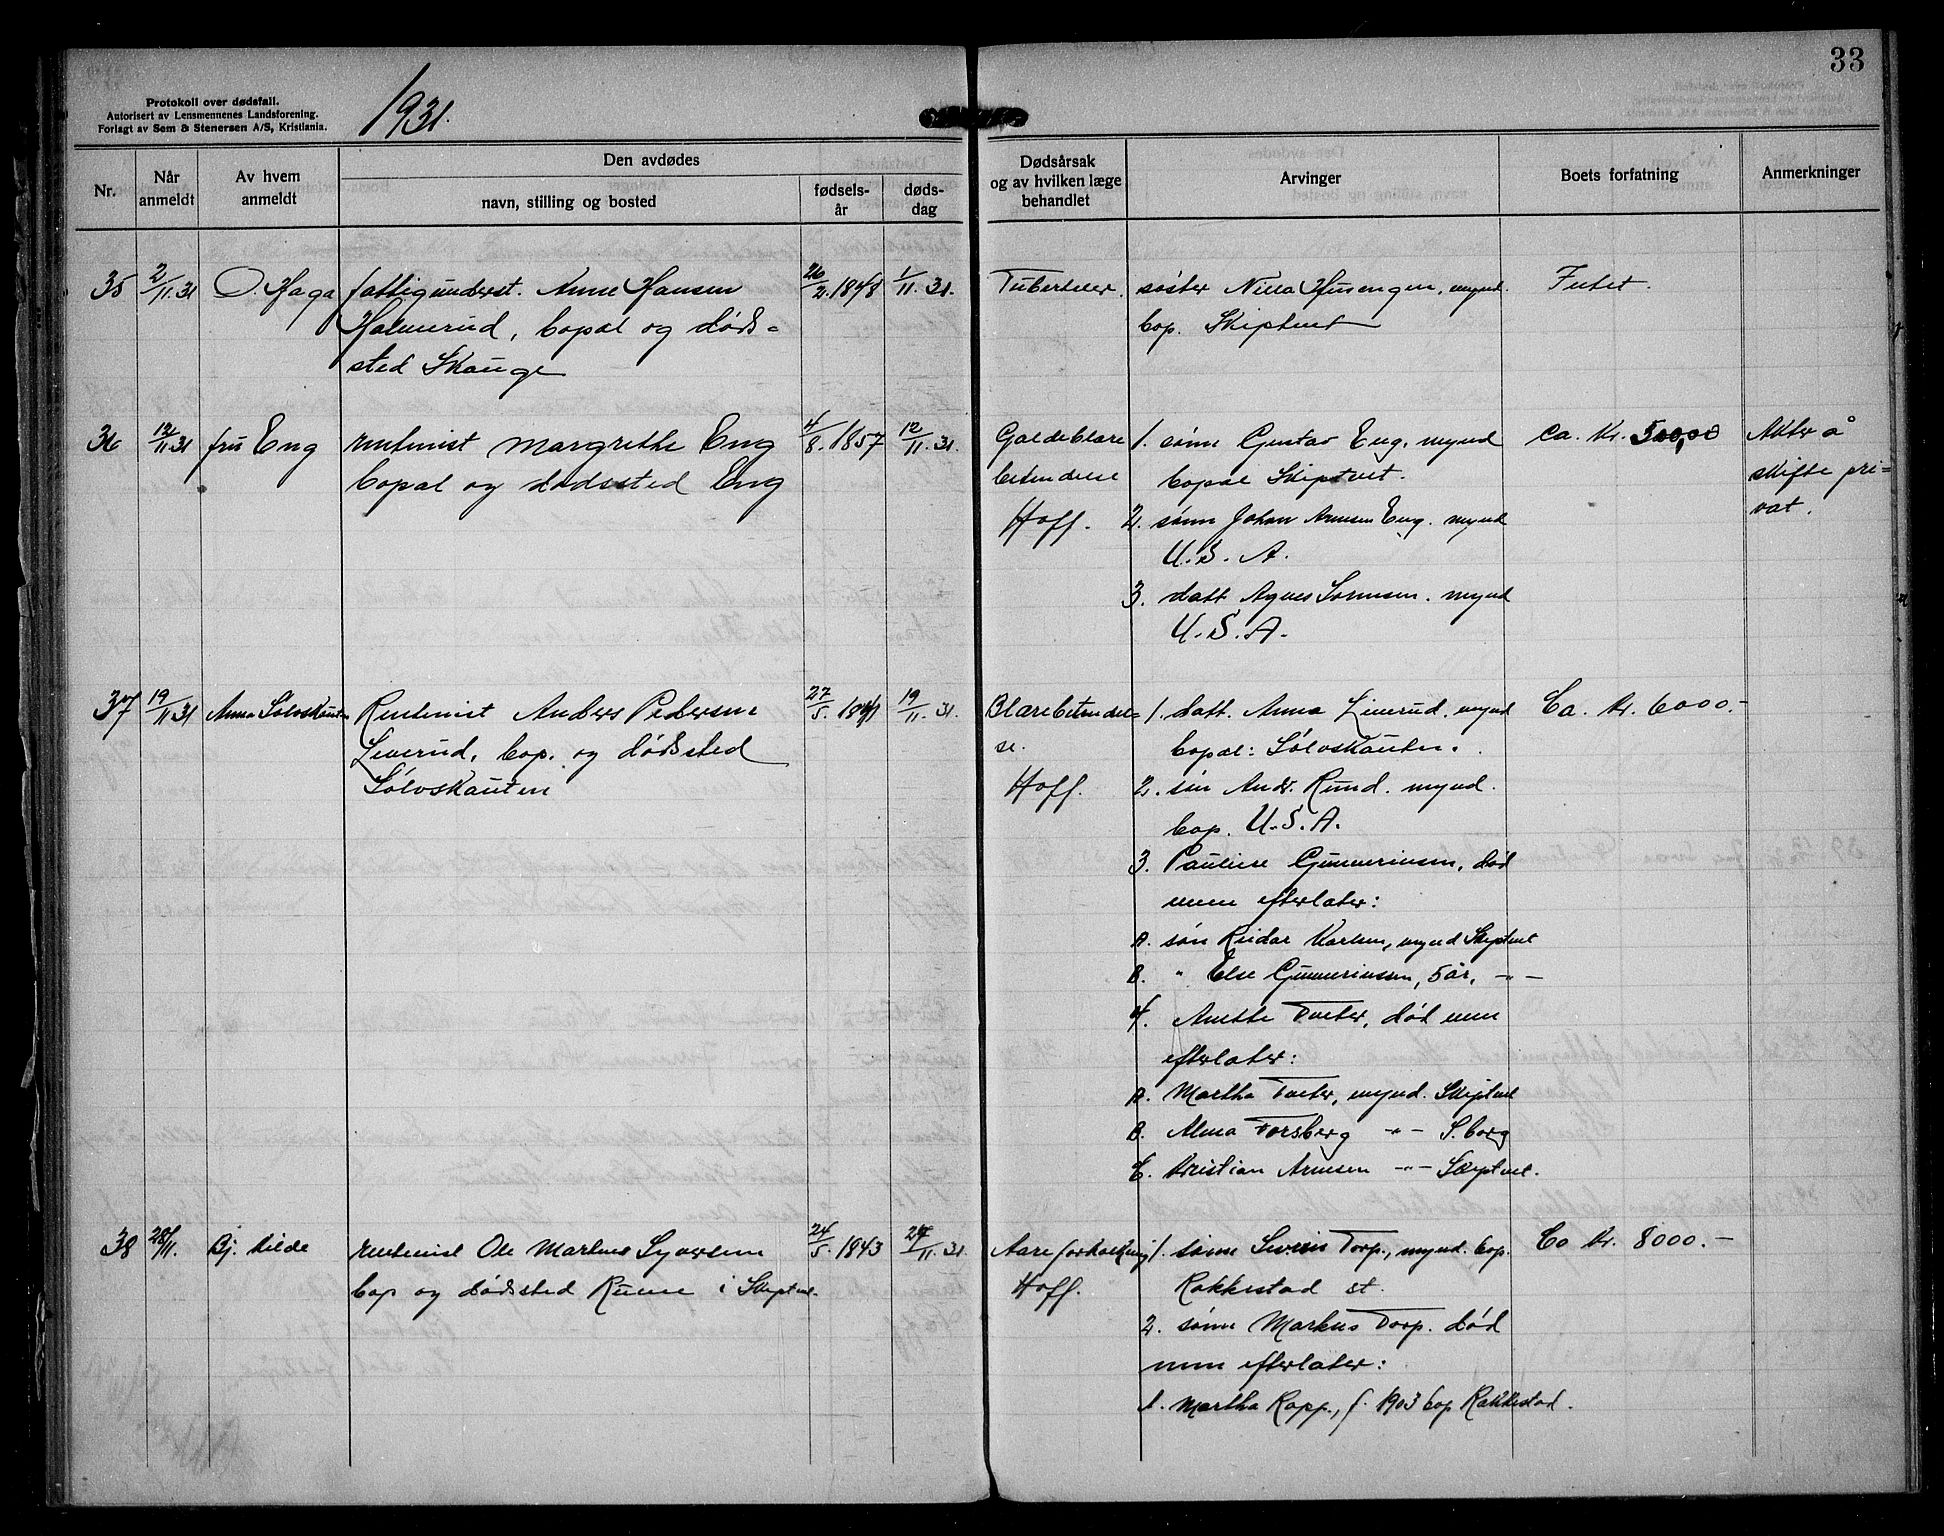 33
Protokoll over dødsfall.
Autorisert av Lensmennenes Landsforening.
Forlagt av Sem & Stenersen A/S, Kristiania.
1931.
Nr.
Når anmeldt
Av hvem anmeldt
Den avdødes
navn, stilling og bosted
fødsels-år
døds-dag
Dødsårsak og av hvilken læge behandlet
Arvinger
Boets forfatning
Anmerkninger
35 2/11.31 O. Haga fattigunderst. Anne Hansen 26/2.1848 1/11.31. søster Husengen, mynd.
Halnerud, bopal og døds= bop. Skiptvet
sted Skauge
Intet.
36 12/11.31 fru Eng rentenist Margrethe Eng 4/8.1857 12/11.31. Galdeblære 1. sønn Gustav Eng, mynd ca. kr. 500,00 Akter å
bopal og dødssted Eng betendelse bopal Skiptvet. skifte pri=
Hoff. 2. sønn Johan Arnesen Eng. mynd vat.
U.S.A.
3. datt Agnes Sørensen. mynd
U.S.A.
37 19/11.31 Anna Sølvskauten Rentenist Anders Pedersen 27/5.1841 19/11.31. Blærebetendel= 1. datt. Anna Liverud. mynd Ca. kr. 6000.-
Liverud, bop. og dødssted se. bopal: Sølvskauten.
Sølvskauten Hoff. 2. søn Andr. Rund. mynd.
bop. U.S.A.
3. Pauline Gunneriussen, død
men efterlater:
A. søn Reidar Karlsen, mynd Skiptvet
B. " Else Gunneriussen, 5 år, -"-
4. Anette Tveter, død men
efterlater:
A. Martha Tveter, mynd. Skiptvet
B. Alma Forsberg -"- S.borg
C. Kristian Arnesen -"- Skiptvet.
38 28/11. Bj. Kilde rentenist Ole Martinus Syversen 24/5.1843 /11.31. Aareforkalkning 1. sønn Severin Torp., mynd. bop. Ca kr. 8000.-
bop og dødssted i Skiptvet. Hoff. Rakkestad st.
2. sønn Markus Torp. død
men efterlater:
A. Martha Kopp., f. 1903 bop Rakkestad.